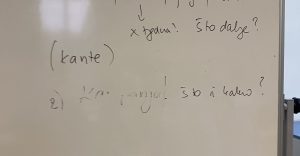 x tjedna! Što dalje?
(kante)
2) što i kako?